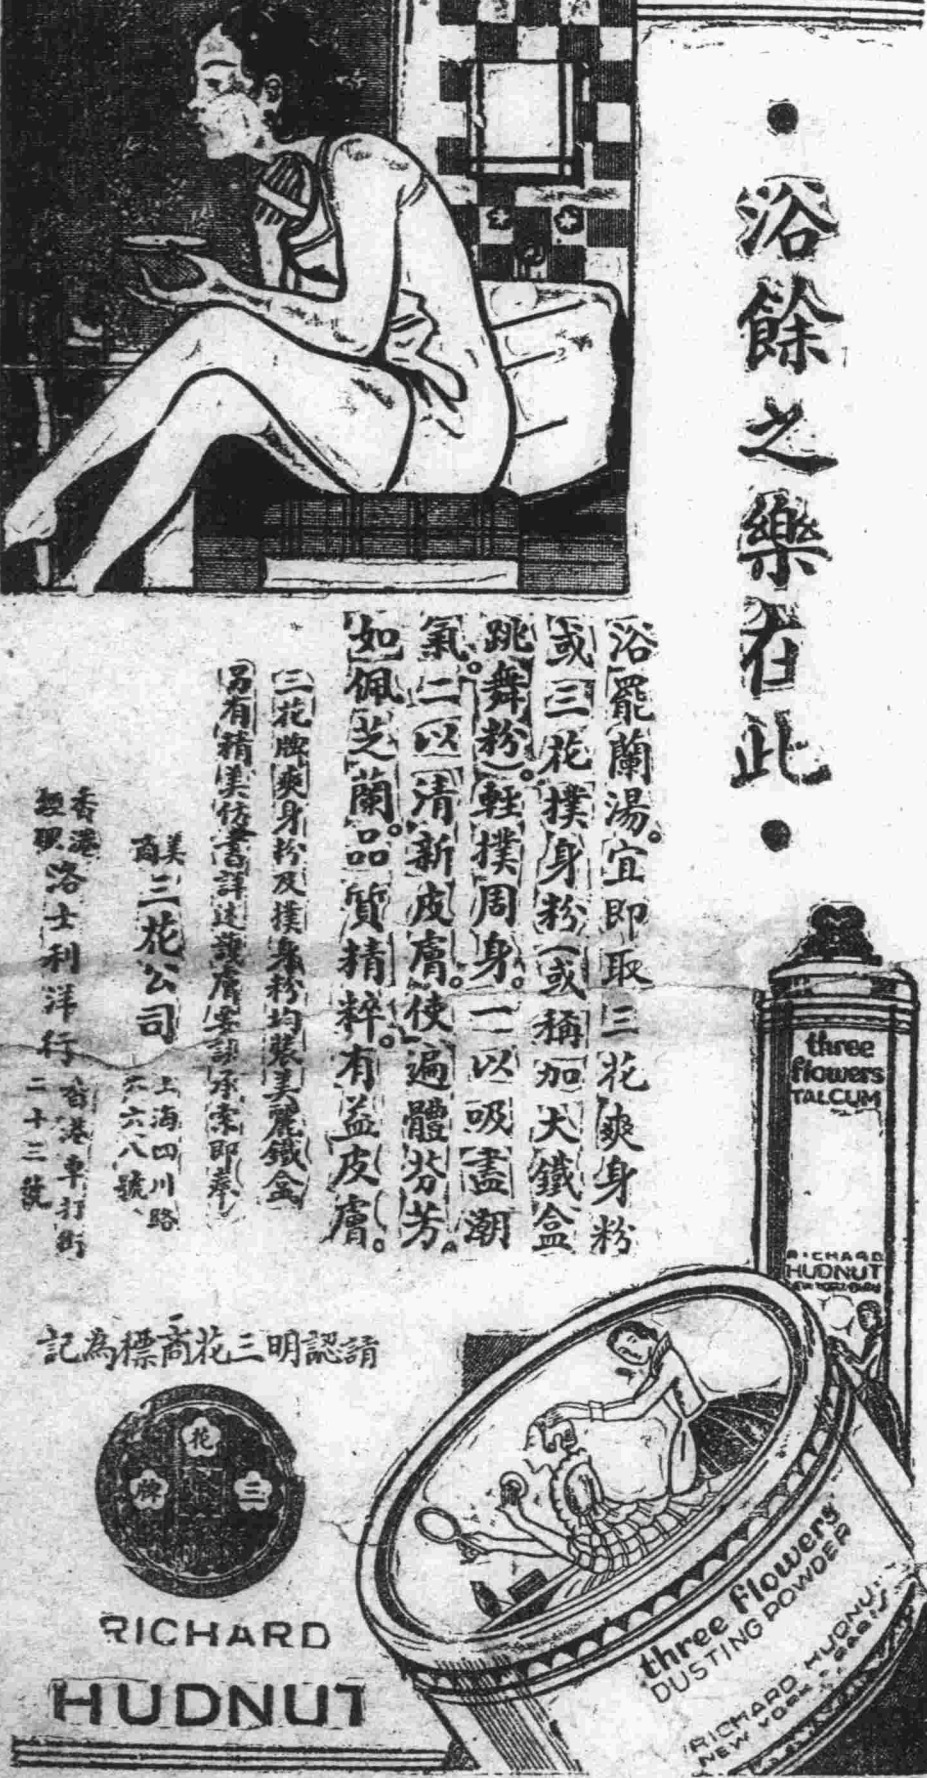 浴餘之樂在此
浴罷蘭湯。宜即取三花爽身粉
或三花撲身粉(或稱加大鐵盒
跳舞粉)。輕撲周身。一以吸盡潮
氣。二以清新皮膚。使遍體芬芳。
如佩芝蘭。品質精粹。有益皮膚。
三花牌爽身粉及撲身粉均裝美麗鐵盒
另有精美仿書詳述護膚要訣承索即奉
美商 三花公司 上海四川路
六六八號
香港經理 洛士利洋行 香港車打街
二十三號
請認明三花商標為記
花
三
牌
RICHARD
HUDNUT
three
flowers
TALCUM
RICHARD
HUDNUT
three flowers
DUSTING POWDER
RICHARD HUDNUT
NEW YORK PARIS